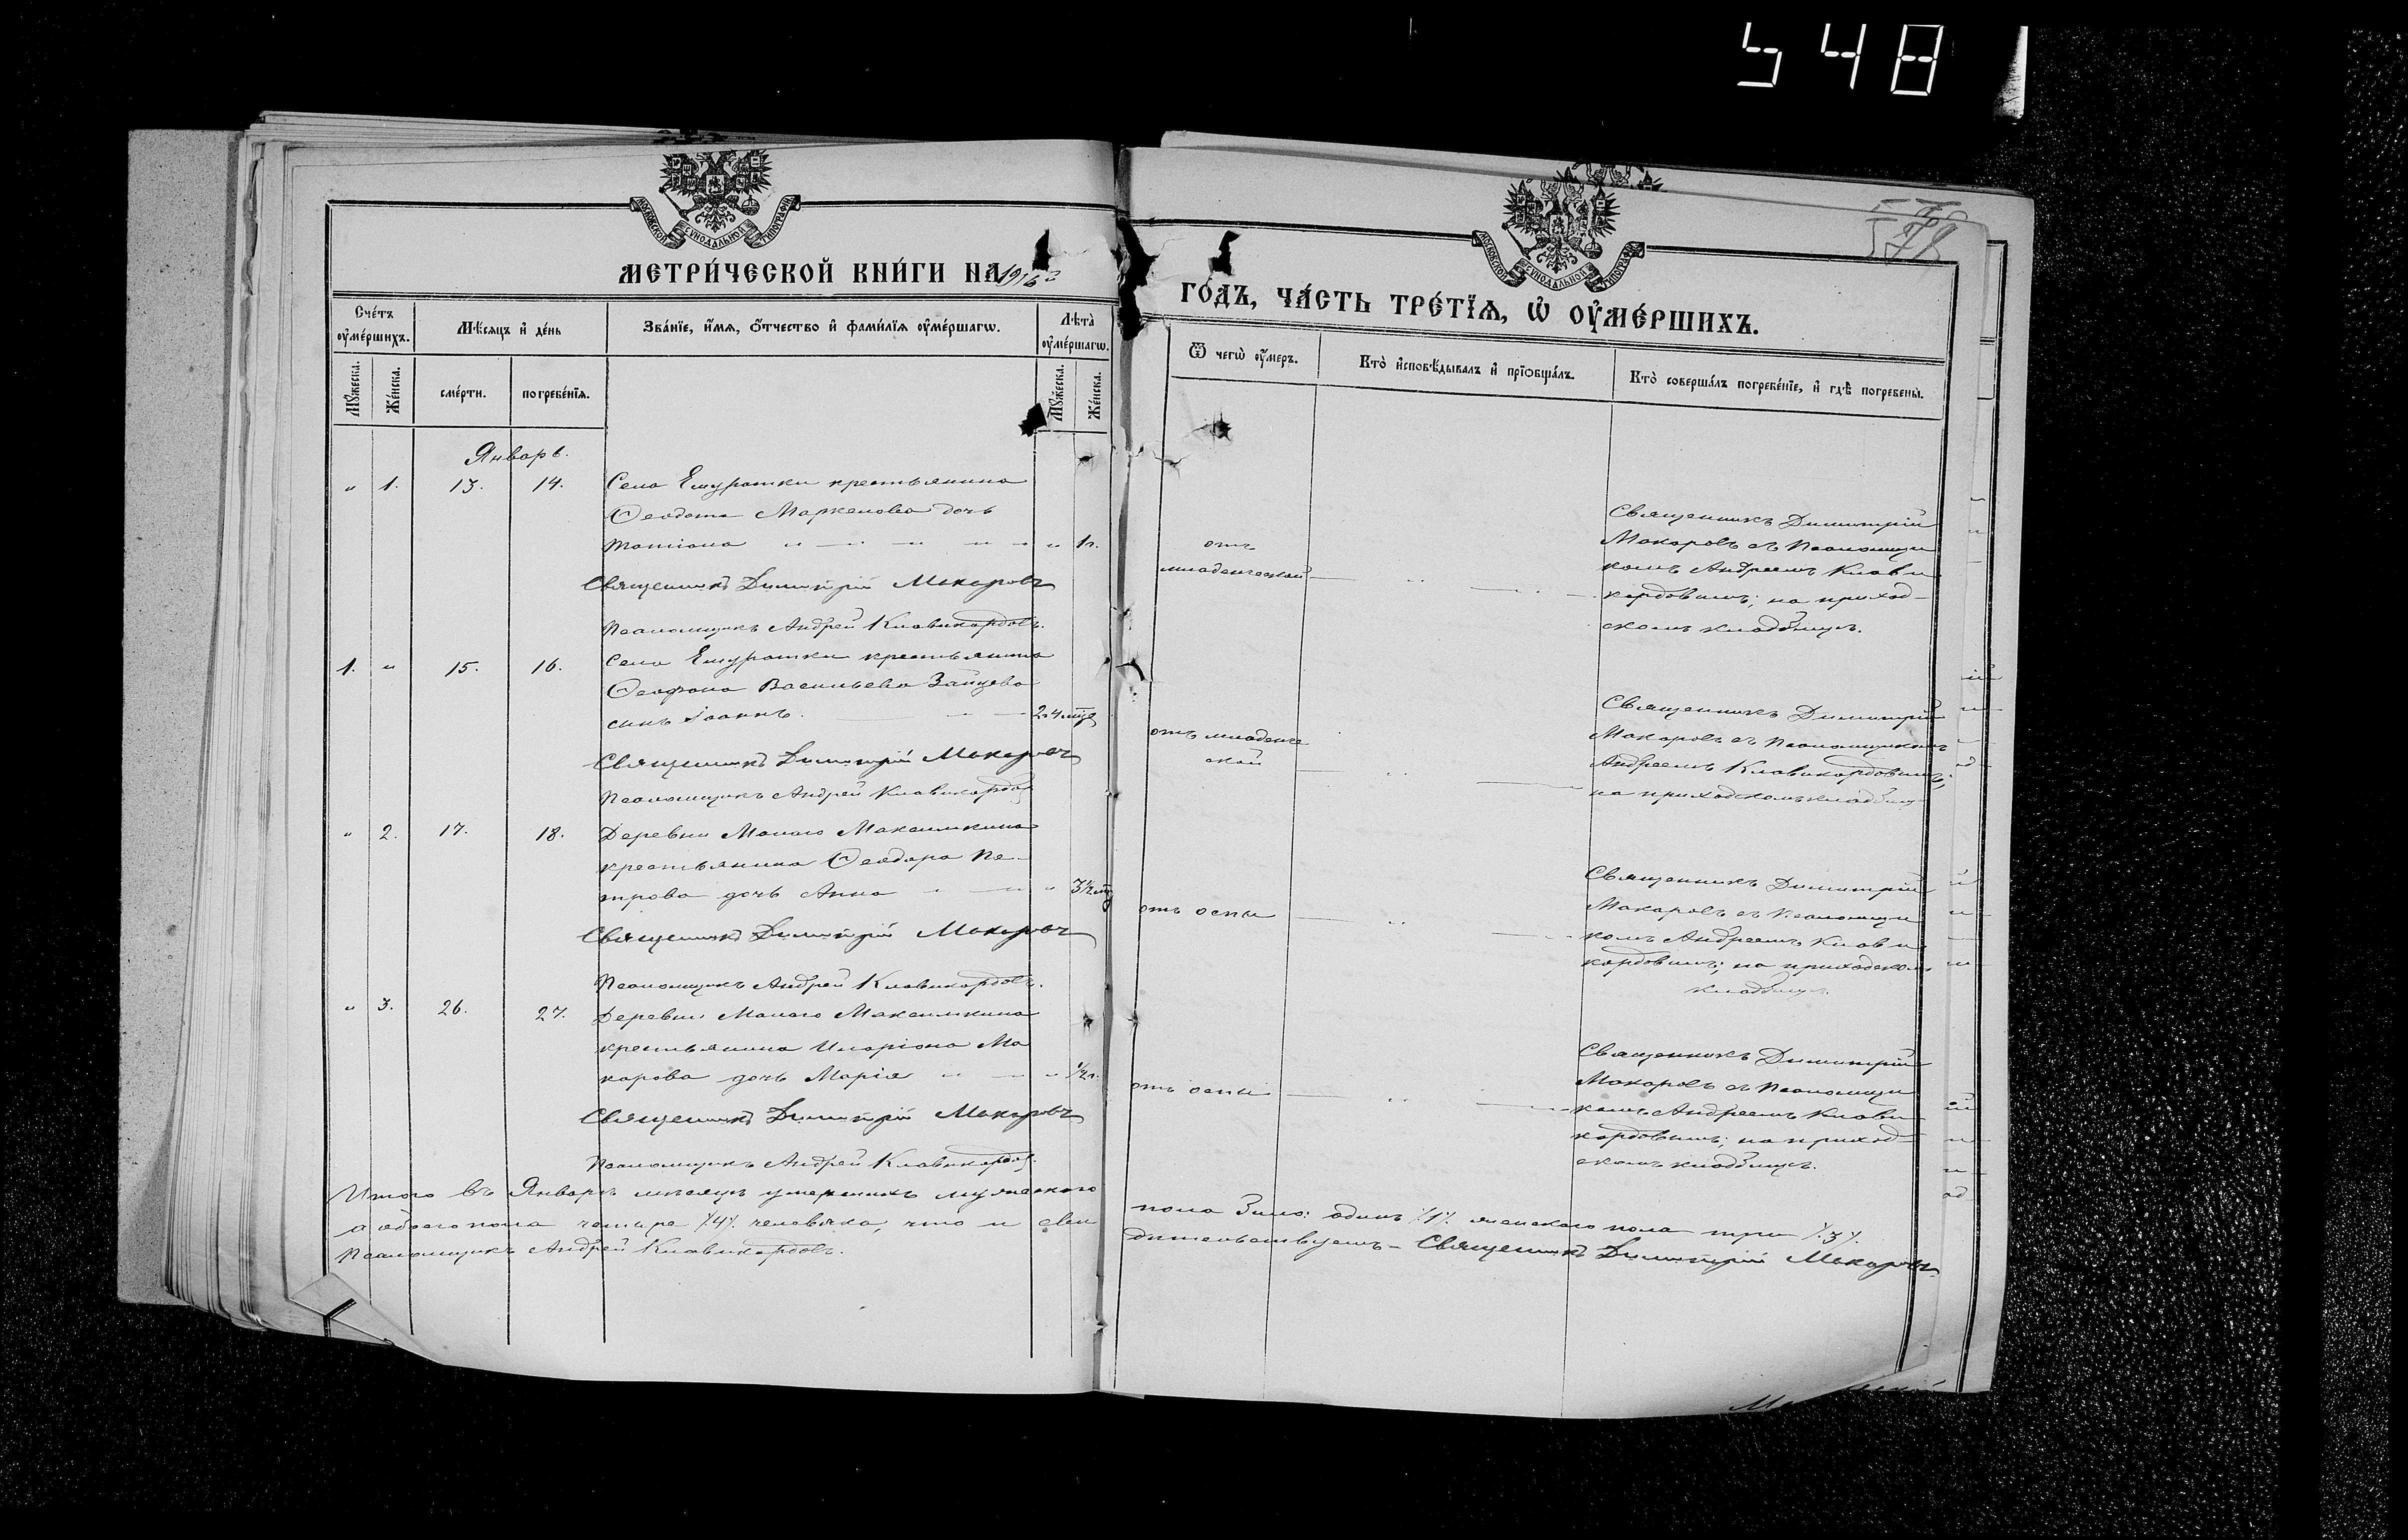 548
МОСКОВСКОЙ СѴНОДАЛЬНОЙ ТИПОГРАФІИ
МОСКОВСКОЙ СѴНОДАЛЬНОЙ ТИПОГРАФІИ
МЕТРИ́ЧЕСКОЙ КНИ́ГИ НА 1916
ГО́ДЪ, ЧА́СТЬ ТРЕ́ТЇѦ, Ѡ҆ ОУ҆МЕ́РШИХЪ.
Сче́тъ оу҆ме́ршихъ.
Мѣ́сѧцъ и҆ де́нь
Зва́нїе, и҆́мѧ, ѻ҆́тчество и҆ фами́лїѧ оу҆ме́ршагѡ.
Лѣ̑та̀ оу҆ме́ршагѡ.
Ѿ чегѡ̀ оу҆́меръ.
Кто̀ и҆сповѣ́дывалъ и҆ прїѻбща́лъ.
Кто̀ соверша́лъ погребе́нїе, и҆ гдѣ̀ погребены̀.
Мꙋ́жеска.
Же́нска.
сме́рти.
погребе́нїѧ.
Мꙋ́жеска.
Же́нска.
Январь.
„ 1. 13. 14. Села Емуратки крестьянина
Ѳеодота Маркелова дочь
Татіана „ — „ — „ — „ 1 г.
Священникъ Димитрій Макаровъ
Псаломщикъ Андрей Клавикордовъ.
отъ
младенческой
Священникъ Димитрій
Макаровъ съ Псаломщи
комъ Андреемъ Клави
кордовымъ; на приход-
скомъ кладбищѣ.
1. „ 15. 16. Села Емуратки крестьянина
Васильева Зайцева
сынъ Іоаннъ. 2 г. 4 мца
Священникъ Димитрій Макаровъ
Псаломщикъ Андрей Клавикордов
отъ младенче
ской
Священникъ Димитрій
Макаровъ съ Псаломщикомъ
Андреемъ Клавикордовымъ;
на приходскомъ кладбищ
„ 2. 17. 18. Деревни Малаго Максимкина
крестьянина Ѳеодора Пе-
трова дочь Анна „ — „ 3½ мц
Священникъ Димитрій Макаровъ
Псаломщикъ Андрей Клавикордовъ.
отъ оспы
Священникъ Димитрій
Макаровъ съ Псаломщи
комъ Андреемъ Клави
кордовымъ; на приходском
кладбищѣ.
„ 3. 26. 27. Деревни Малаго Максимкина
крестьянина Иларіона Ма
карова дочь Марія „ — „ ½ г.
Священникъ Димитрій Макаровъ
Псаломщикъ Андрей Клавикордов.
отъ оспы
Священникъ Димитрій
Макаровъ съ Псаломщи
комъ Андреемъ Клави
кордовымъ; на приход-
скомъ кладбищѣ.
Итого въ Январѣ мѣсяцѣ умершихъ мужескаго
пола было: одинъ /1/ женскаго пола три /3/
а обоего пола четыре /4/ человѣка, что и сви
дѣтельствуемъ – Священникъ Димитрій Макаровъ
Псаломщикъ Андрей Клавикордовъ.